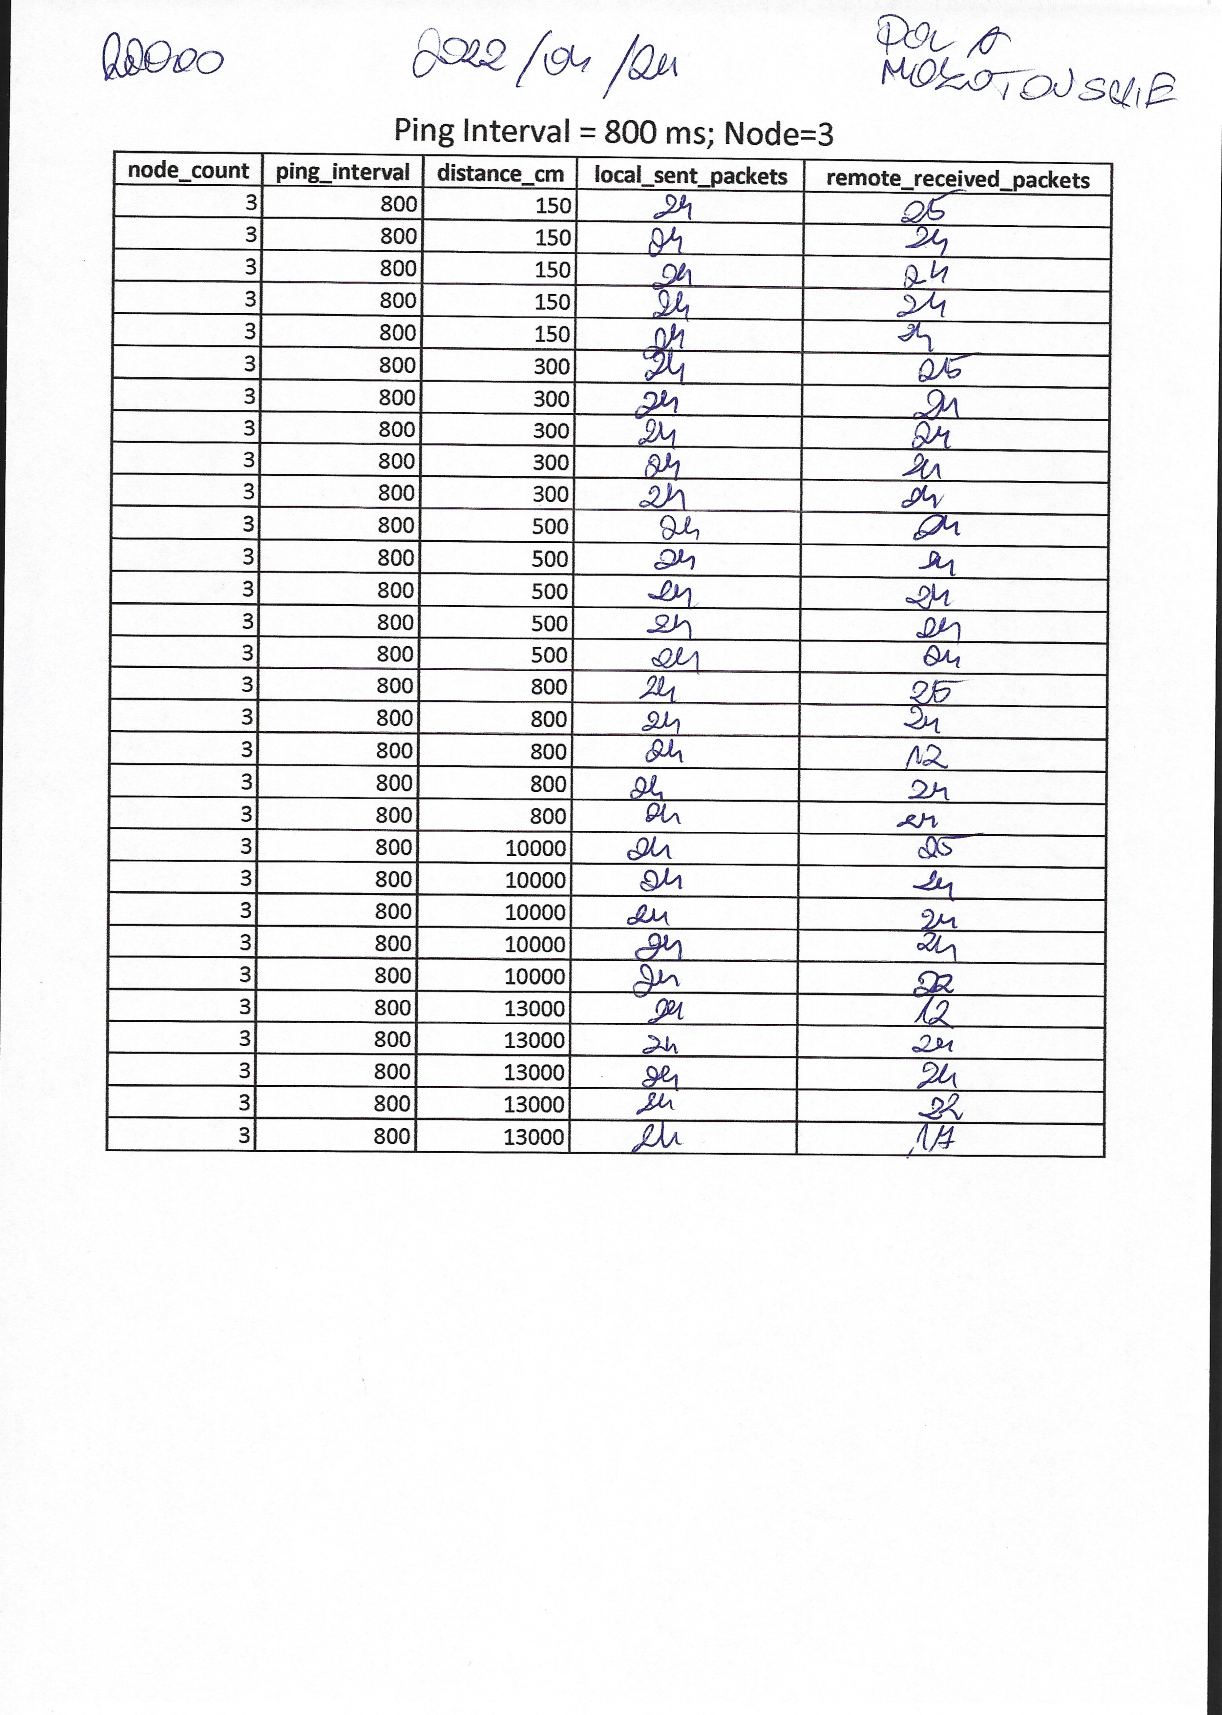 20000 2022/04/24 POLA
MOKOTOWSKIE
Ping Interval = 800 ms; Node=3
node_count ping_interval distance_cm local_sent_packets remote_received_packets
3 800 150 24 25
3 800 150 24 24
3 800 150 24 24
3 800 150 24 24
3 800 150 24 24
3 800 300 24 25
3 800 300 24 24
3 800 300 24 24
3 800 300 24 24
3 800 300 24 24
3 800 500 24 24
3 800 500 24 24
3 800 500 24 24
3 800 500 24 24
3 800 500 24 24
3 800 800 24 25
3 800 800 24 24
3 800 800 24 12
3 800 800 24 24
3 800 800 24 24
3 800 10000 24 25
3 800 10000 24 24
3 800 10000 24 24
3 800 10000 24 24
3 800 10000 24 22
3 800 13000 24 12
3 800 13000 24 24
3 800 13000 24 24
3 800 13000 24 22
3 800 13000 24 17